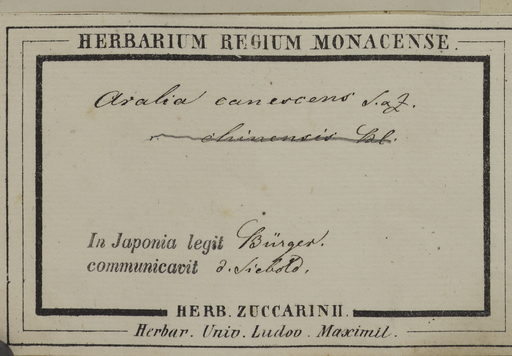 HERBARIUM REGIUM MONACENSE.
Aralia canescens S. & Z.
chinensis Bl.
In Japonia legit Bürger.
communicavit d. Siebold.
HERB. ZUCCARINII.
Herbar. Univ. Ludov. Maximil.